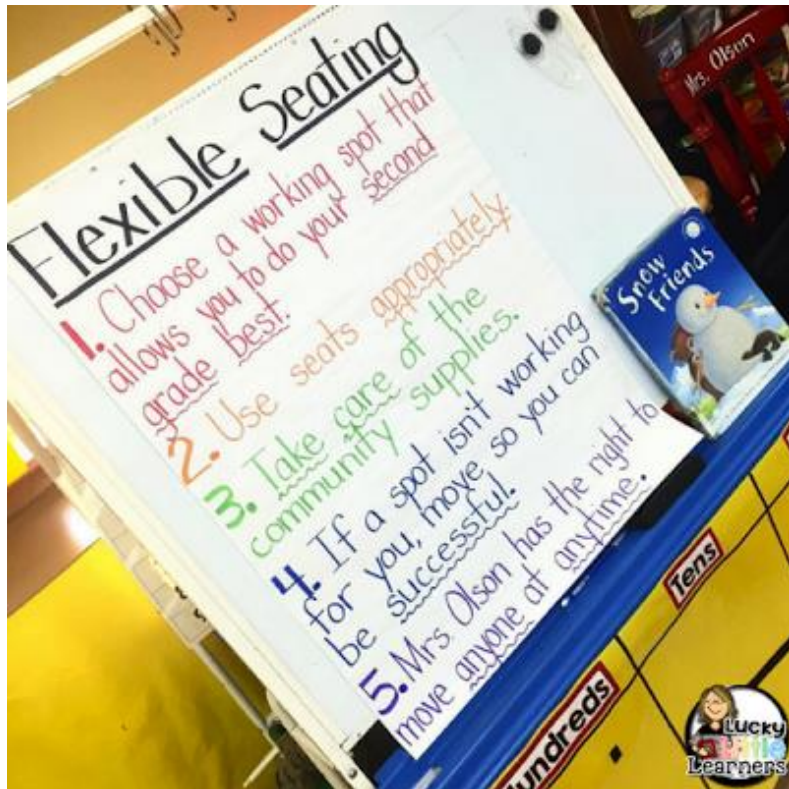 Flexible Seating
1. Choose a working spot that
allows you to do your second
grade best.
2. Use seats appropriately.
3. Take care of the
community supplies.
4. If a spot isn't working
for you, move so you can
be successful.
5. Mrs. Olson has the right to
move anyone at anytime.
Mrs. Olson
Snow
Friends
Tens
Hundreds
Lucky
Little
Learners